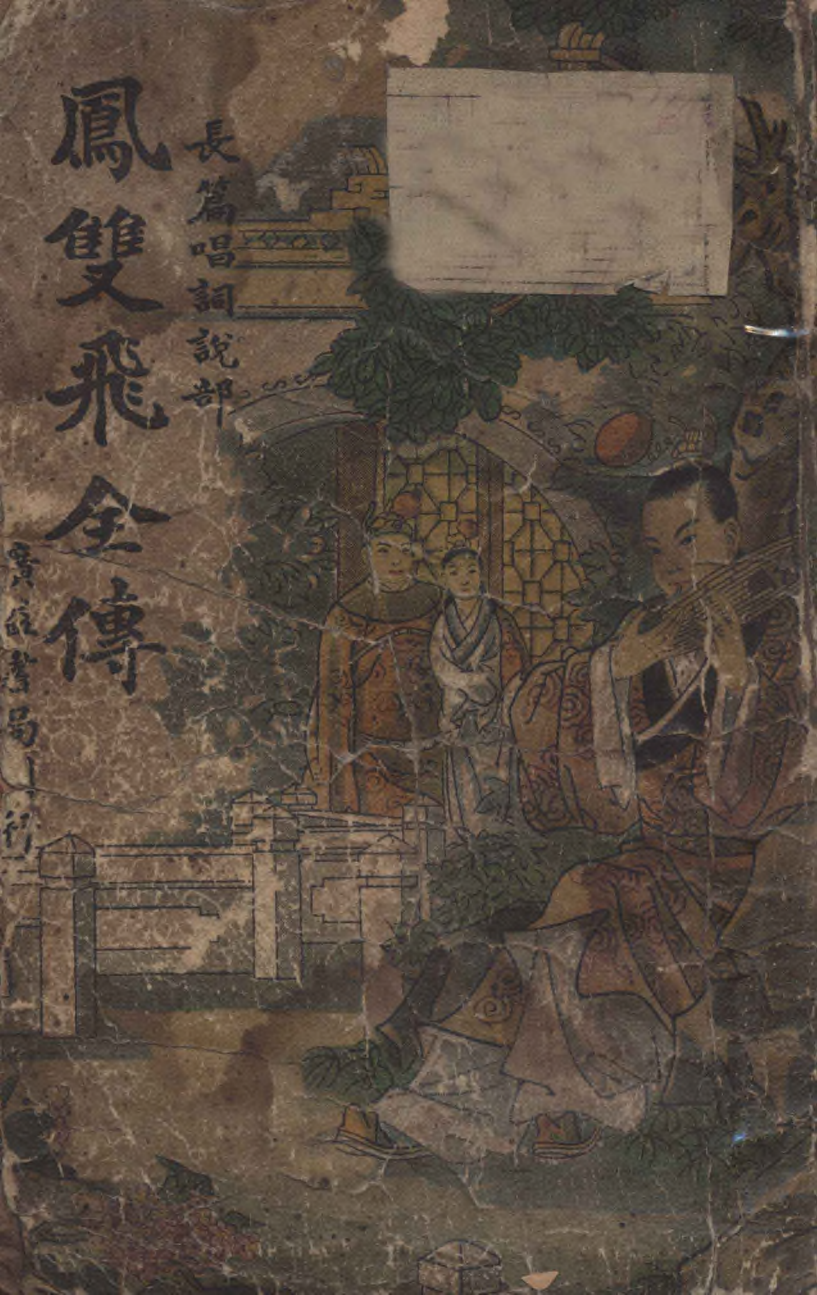 長篇唱詞說部
鳳雙飛全傳
廣益書局刊行